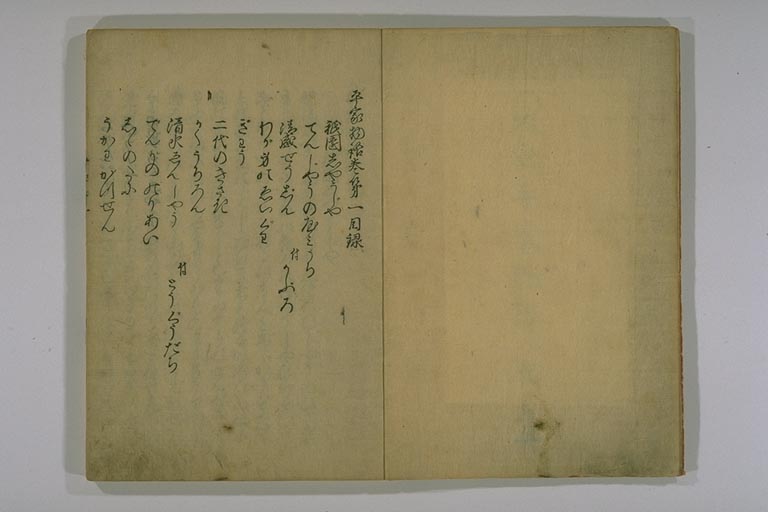 平家物語巻第一目録
祇園しやうじや
てんじやうのやみうち
清盛せうしん 付 かぶろ
わが身のゑいぐわ
ぎわう
二代のきさき
がくうちろん
清水ゑんしやう 付 とうぐうだち
でんがのりあい
しゝのたに
うかわがつせん